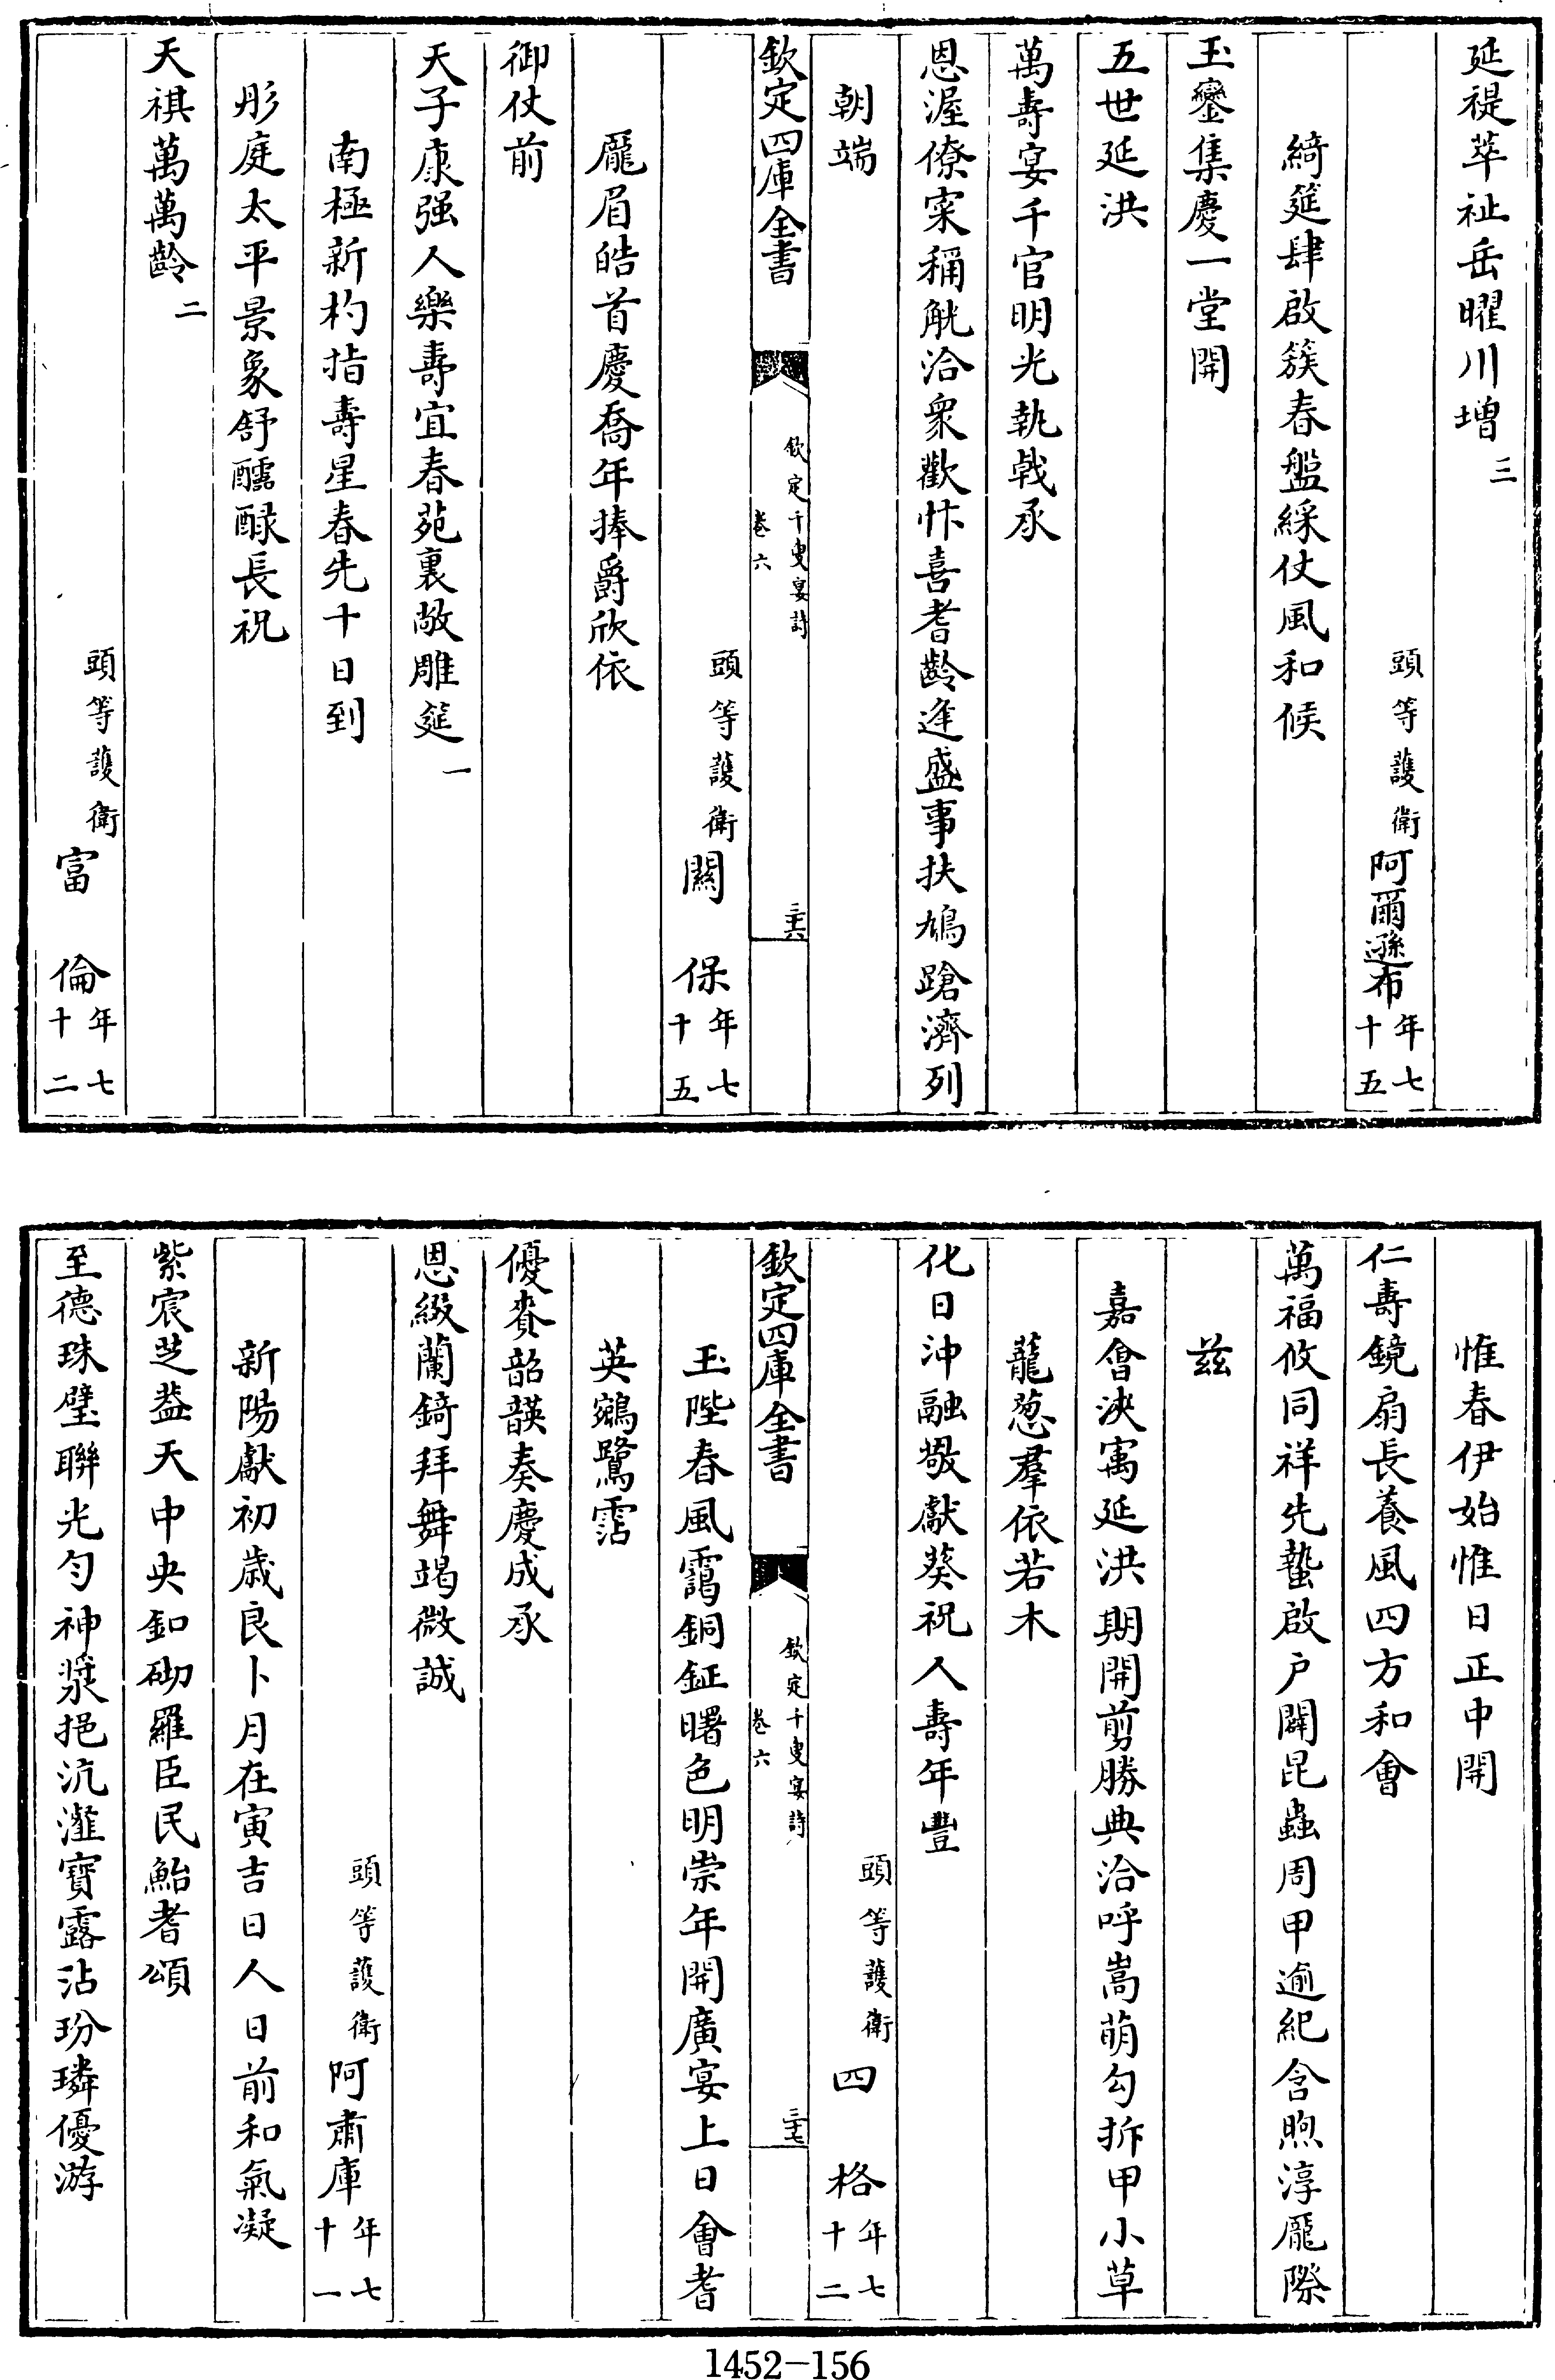 延禔萃祉岳曜川增三
頭等護衛阿爾遜布年七十五
綺筵肆啟簇春盤綵仗風和候
玉鑾集慶一堂開
五世延洪
萬壽宴千官明光執戟承
恩渥僚寀稱觥洽衆歡忭喜耆齡逢盛事扶鳩蹌濟列
朝端
欽定四庫全書
欽定千叟宴詩
卷六
三十六
頭等護衛關保年七十五
龎眉皓首慶喬年捧爵欣依
御仗前
天子康强人樂壽宜春苑裏敞雕筵一
南極新杓指壽星春先十日到
彤庭太平景象舒醽醁長祝
天祺萬萬齡二
頭等護衛富倫年七十二
惟春伊始惟日正中開
仁壽鏡扇長養風四方和會
萬福攸同祥先蟄啟户闢昆蟲周甲逾紀含煦淳龎際
兹
嘉會浹寓延洪期開剪勝典洽呼嵩萌勾拆甲小草
蘢葱羣依若木
化日沖融敬獻葵祝人壽年豐
頭等護衛四格年七十二
欽定四庫全書
欽定千叟宴詩
卷六
三十七
玉陛春風靄銅鉦曙色明崇年開廣宴上日會耆
英鵷鷺霑
優賚韶韺奏慶成承
恩綴蘭錡拜舞竭微誠
頭等護衛阿肅庫年七十一
新陽獻初歲良卜月在寅吉日人日前和氣凝
紫宸芝葢天中央釦砌羅臣民鮐耆頌
至德珠璧聯光勻神漿挹沆瀣寶露沾玢璘優游
1452-156